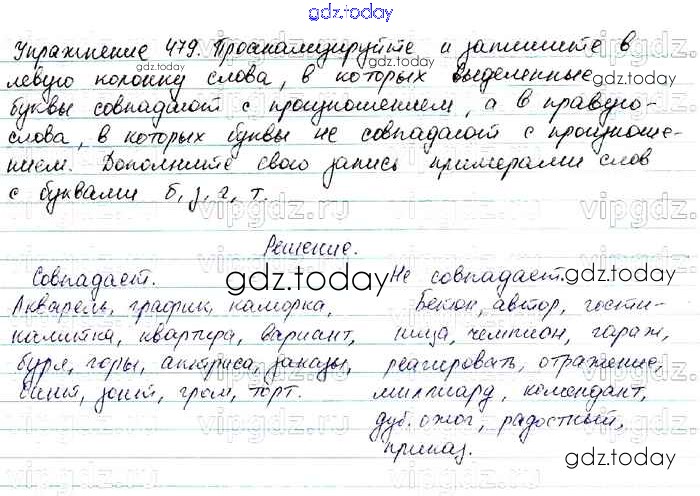 gdz.today
Упражнение 479. Проанализируйте и запишите в
левую колонку слова, в которых выделенные
буквы совпадают с произношением, а в правую-
слова, в которых буквы не совпадают с произноше-
нием. Дополните свою запись примерами слов
с буквами б, з, г, т.
Решение.
Совпадает. Не совпадает.
Акварель, график, каморка, Бекон, автор, гости-
калитка, квартира, вариант, ница, чемпион, гараж,
буря, горы, актриса, заказы, реагировать, отражение,
бинт, зонт, гром, торт. миллиард, комендант,
дуб. ожог, радостный,
приказ.
gdz.today
gdz.today
gdz.today
gdz.today
gdz.today
gdz.today
gdz.today
vipgdz.ru
vipgdz.ru
vipgdz.ru